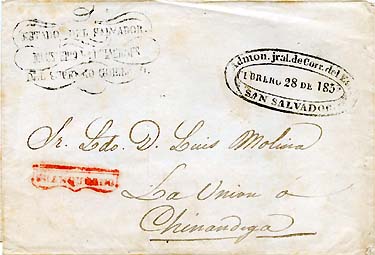 ESTADO DEL SALVADOR.
MINISTERIO
DEL SUPREMO GOBIERNO.
Admon. jral. de Corr. del Es
FBRERO 28 DE 185
SAN SALVADOR
Sr. Ldo. D. Luis Molina
FRANQUEADO
La Union ó
Chinandega